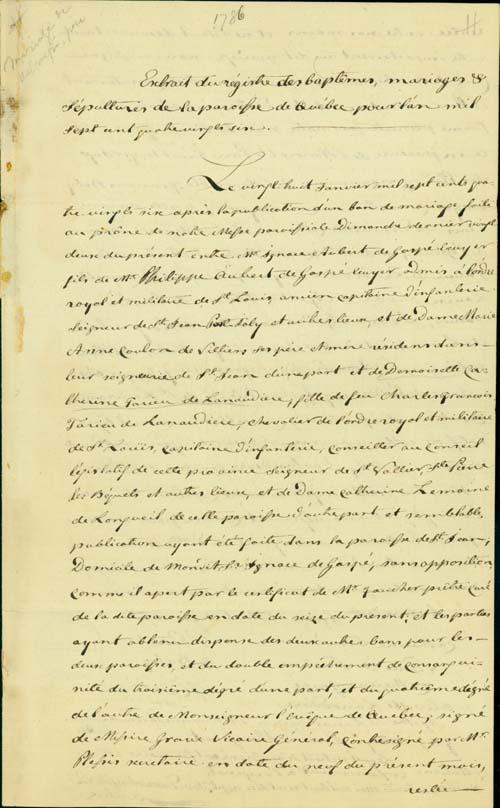 1786
mariage de
Extrait du registre des baptêmes, mariages &
sépultures de la paroisse de Québec pour l'an mil
sept cent quatre vingts six.
Le vingt huit Janvier mil sept cents qua-
tre vingts six après la publication d'un ban de mariage faite
au prône de notre Messe paroissiale Dimanche dernier vingt
deux du présent entre Mr. Ignace Aubert de Gaspé écuyer
fils de Mr. Philippe Aubert de Gaspé écuyer admis à l'ordre
royal et militaire de St. Louis, ancien capitaine d'infanterie
Seigneur de St. Jean Port Joly et autres lieux, et de Dame Marie
Anne Coulon de Villiers ses père et mere résidens dans
leur seigneurie de St. Jean d'une part et de Demoiselle Ca-
therine Tarieu de Lanaudiere, fille de feu Charles François
Tarieu de Lanaudiere, chevalier de l'ordre royal et militaire
de St. Louis, capitaine d'infanterie, conseiller au Conseil
législatif de cette province Seigneur de St. Vallier, Ste. Pierre
les Béquets et autres lieux, et de Dame Catherine Lemoine
de Longueil de cette paroisse d'autre part et semblable
publication ayant été faite dans la paroisse de St. Jean,
Domicile de Mondit Sr. Ignace de Gaspé, sans opposition
comme il apert par le certificat de Mr. Faucher prêtre Curé
de la dite paroisse en date du seize du présent, et les parties
ayant obtenu dispense des deux autres bans pour les
deux paroisses, et du double empêchement de Consangui-
nité du troisième dégré d'une part, et du quatrième dégré
de l'autre de Monseigneur l'Evêque de Québec, signé
de Messire Gravé Vicaire Général, contresigné par Mr.
Plessis secretaire en date du neuf du présent mois,
restée